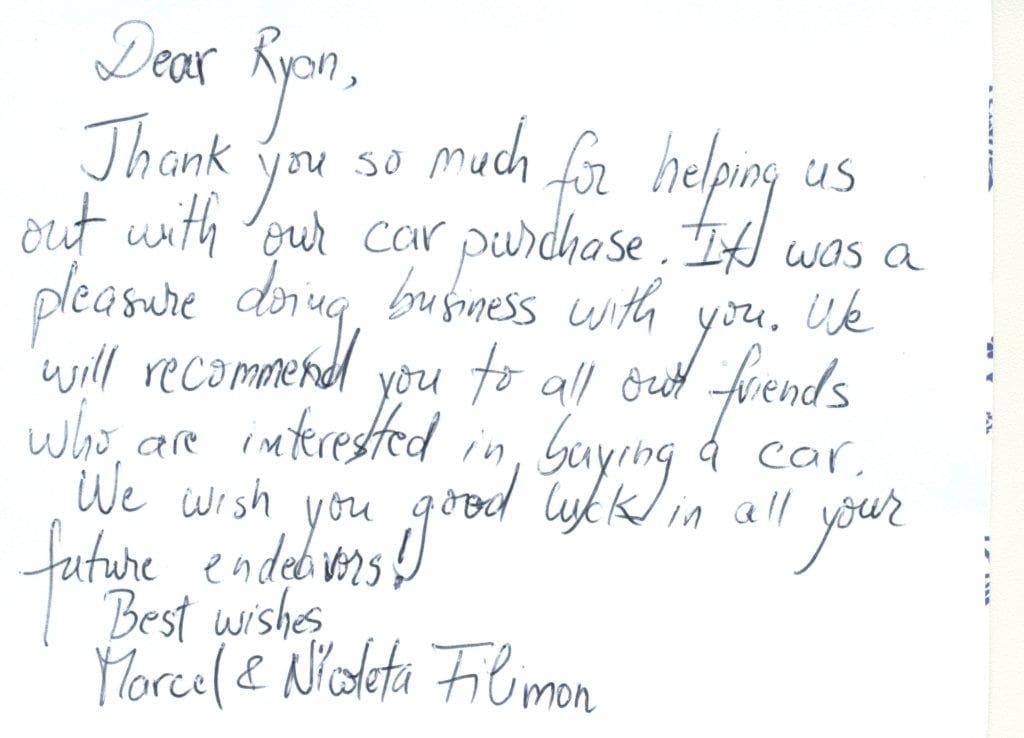 Dear Ryan,
Thank you so much for helping us
out with our car purchase. It was a
pleasure doing business with you. We
will recommend you to all our friends
who are interested in buying a car.
We wish you good luck in all your
future endeavors!
Best wishes
Marcel & Nicoleta Filimon